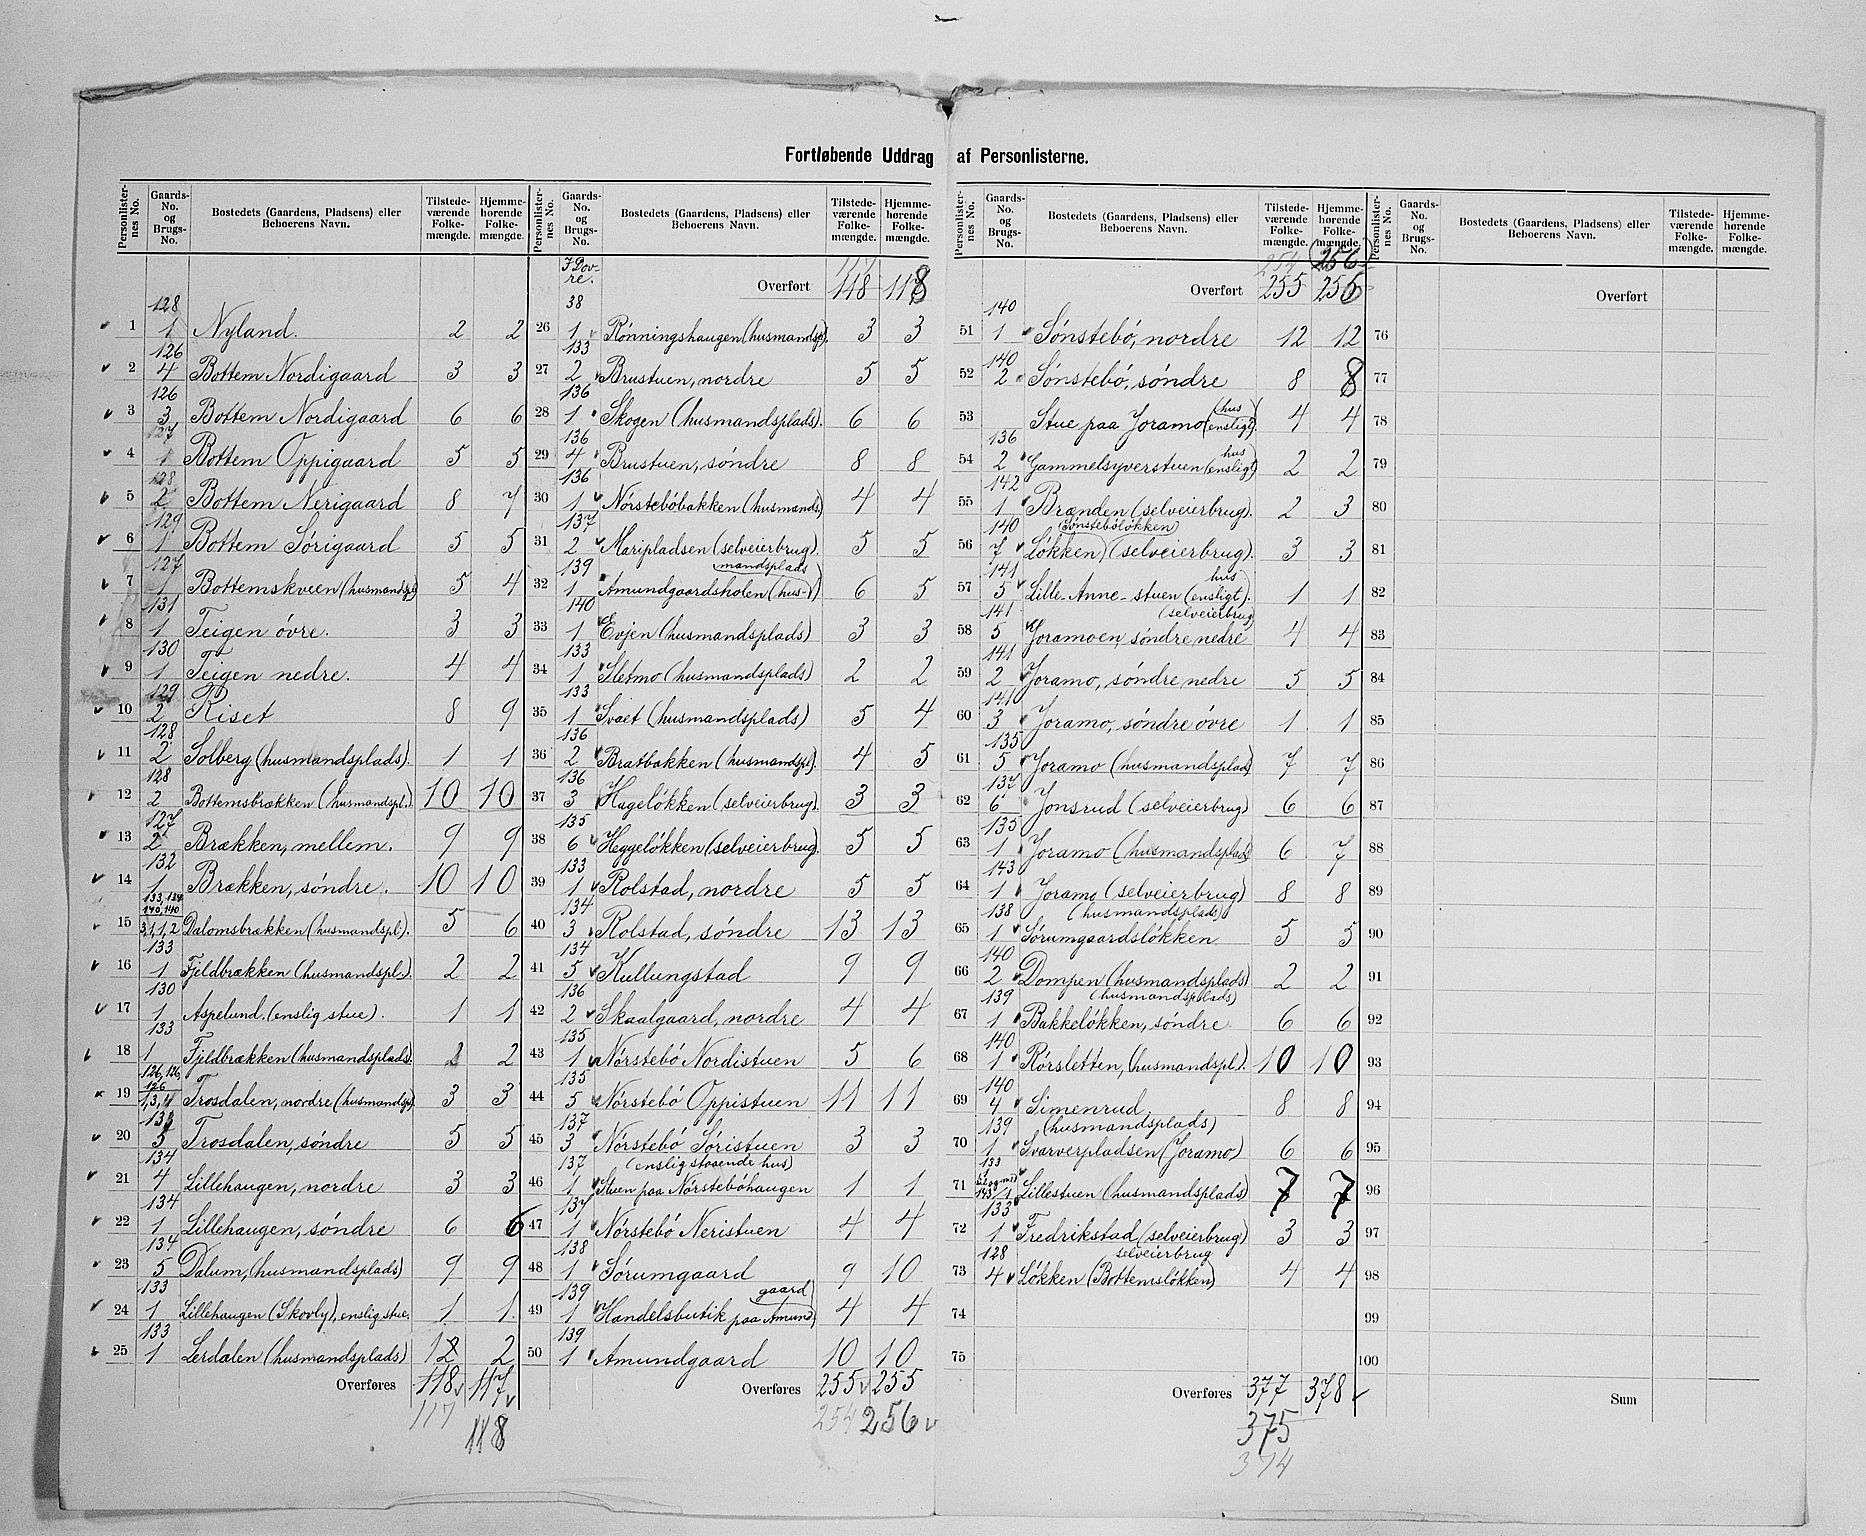 Fortløbende Uddrag af Personlisterne.
Personlister-nes No. | Gaards-No. og Brugs-No. | Bostedets (Gaardens, Pladsens) eller Beboerens Navn. | Tilstede-værende Folke-mængde. | Hjemme-hørende Folke-mængde.
1 | 128 1 | Nyland. | 2 | 2
2 | 126 4 | Bottem Nordigaard | 3 | 3
3 | 126 3 | Bottem Nordigaard | 6 | 6
4 | 127 1 | Bottem Oppigaard | 5 | 5
5 | 128 2 | Bottem Nerigaard | 8 | 7
6 | 129 1 | Bottem Sörigaard | 5 | 5
7 | 127 1 | Bottemskveen (husmandspl) | 5 | 4
8 | 131 1 | Teigen övre. | 3 | 3
9 | 130 1 | Teigen nedre. | 4 | 4
10 | 129 2 | Riset | 8 | 9
11 | 128 2 | Solberg (husmandsplads). | 1 | 1
12 | 128 2 | Bottemsbrækken (husmandspl.) | 10 | 10
13 | 127 2 | Brækken, mellem. | 9 | 9
14 | 132 1 | Brækken, söndre. | 10 | 10
15 | 133, 134 140, 140 3,1,1,2 | Dalomsbrækken (husmandspl). | 5 | 6
16 | 133 1 | Fjeldbrækken (husmandspl.) | 2 | 2
17 | 130 1 | Aspelund. (enslig stue). | 1 | 1
18 | 133 1 | Fjeldbrækken (husmandsplads). | 2 | 2
19 | 126, 126, 126 1,3,4 | Trosdalen, nordre (husmandspl) | 3 | 3
20 | 5 | Trosdalen, söndre | 5 | 5
21 | 134 4 | Lillehaugen, nordre | 3 | 3
22 | 134 1 | Lillehaugen, söndre | 6 | 6
23 | 134 5 | Dalum, (husmandsplads) | 9 | 9
24 | 133 1 | Lillehaugen (Skovly), enslig stue. | 1 | 1
25 | 133 1 | Lerdalen (husmandsplads) | 2 | 2
Overføres 118 117
117 118
Personlister-nes No. | Gaards-No. og Brugs-No. | Bostedets (Gaardens, Pladsens) eller Beboerens Navn. | Tilstede-værende Folke-mængde. | Hjemme-hørende Folke-mængde.
I Dov-re.
117
Overført 118 118
26 | 38 1 | Rönningshaugen (husmandspl). | 3 | 3
27 | 133 2 | Brustuen, nordre | 5 | 5
28 | 136 1 | Skogen (husmandsplads). | 6 | 6
29 | 136 4 | Brustuen, söndre | 8 | 8
30 | 136 1 | Nörsteböbakken (husmands.) | 4 | 4
31 | 137 2 | Maripladsen (selveierbrug). | 5 | 5
32 | 139 1 | Amundgaardsholen (hus-mandsplads) | 6 | 5
33 | 140 1 | Evjen (husmandsplads) | 3 | 3
34 | 133 1 | Sletmo (husmandsplads) | 2 | 2
35 | 133 1 | Svaet (husmandsplads) | 5 | 4
36 | 136 2 | Bratbakken (husmandspl). | 4 | 5
37 | 136 3 | Hagelökken (selveierbrug). | 3 | 3
38 | 135 6 | Heggelökken (selveierbrug). | 5 | 5
39 | 133 1 | Rolstad, nordre | 5 | 5
40 | 134 3 | Rolstad, söndre | 13 | 13
41 | 134 5 | Kullungstad | 9 | 9
42 | 136 2 | Skaalgaard, nordre | 4 | 4
43 | 135 1 | Nörstebö Nordistuen | 5 | 6
44 | 135 5 | Nörstebö Oppistuen | 11 | 11
45 | 137 3 | Nörstebö Söristuen | 3 | 3
(enslig staaende hus)
46 | 137 1 | Stuen paa Nörsteböhaugen | 1 | 1
47 | 137 1 | Nörstebö Neristuen | 4 | 4
48 | 138 1 | Sörumgaard | 9 | 10
49 | 139 1 | Handelsbutik paa Amundgaard | 4 | 4
50 | 139 1 | Amundgaard | 10 | 10
Overføres 255 255
254 256
Personlister-nes No. | Gaards-No. og Brugs-No. | Bostedets (Gaardens, Pladsens) eller Beboerens Navn. | Tilstede-værende Folke-mængde. | Hjemme-hørende Folke-mængde.
254 (256)
Overført 255 256
51 | 140 1 | Sönstebö, nordre | 12 | 12
52 | 140 2 | Sönstebö, söndre | 8 | 8
53 | Stue paa Joramo (ensligt hus). | 4 | 4
54 | 136 2 | Gammelsyverstuen (ensligt hus) | 2 | 2
55 | 142 1 | Brænden (selveierbrug). | 2 | 3
(Sönstebölökken)
56 | 140 7 | Løkken (selveierbrug). | 3 | 3
57 | 141 5 | Lille-Anne-stuen (ensligt hus). | 1 | 1
(selveierbrug)
58 | 141 5 | Joramoen, söndre nedre | 4 | 4
59 | 141 2 | Joramo, söndre nedre | 5 | 5
60 | 141 3 | Joramo, söndre övre | 1 | 1
61 | 135 5 | Joramo (husmandsplads) | 7 | 7
62 | 137 6 | Jonsrud (selveierbrug) | 6 | 6
63 | 135 1 | Joramo (husmandsplads) | 6 | 7
64 | 143 1 | Joramo (selveierbrug) | 8 | 8
(husmandsplads)
65 | 138 1 | Sörumgaardslökken | 5 | 5
66 | 140 2 | Dompen (husmandsplads) | 2 | 2
(husmandsplads)
67 | 139 1 | Bakkelökken, söndre | 6 | 6
68 | 140 1 | Rörsletten, (husmandspl). | 10 | 10
69 | 140 4 | Simenrud | 8 | 8
(husmandsplads)
70 | 139 1 | Svarverpladsen (Joramo) | 6 | 6
71 | 133 143/1 | Lillestuen (husmandsplads) | 7 | 7
72 | 133 1 | Fredrikstad (selveierbrug) | 3 | 3
selveierbrug
73 | 128 4 | Lökken (Bottemslökken) | 4 | 4
74
75
Overføres 377 378
375
374
Personlister-nes No. | Gaards-No. og Brugs-No. | Bostedets (Gaardens, Pladsens) eller Beboerens Navn. | Tilstede-værende Folke-mængde. | Hjemme-hørende Folke-mængde.
Overført
76
77
78
79
80
81
82
83
84
85
86
87
88
89
90
91
92
93
94
95
96
97
98
99
100
Sum